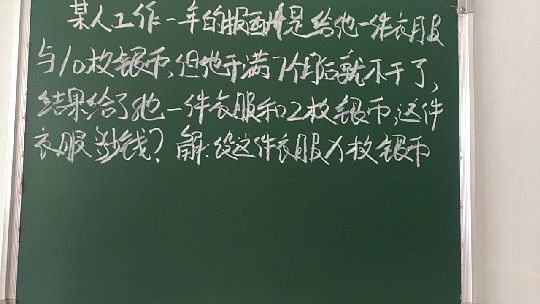 某人工作一年的报酬是给他一件衣服
与10枚银币,但他干满7个月后就不干了,
结果给了他一件衣服和2枚银币,这件
衣服多少钱?解:设这件衣服X枚银币